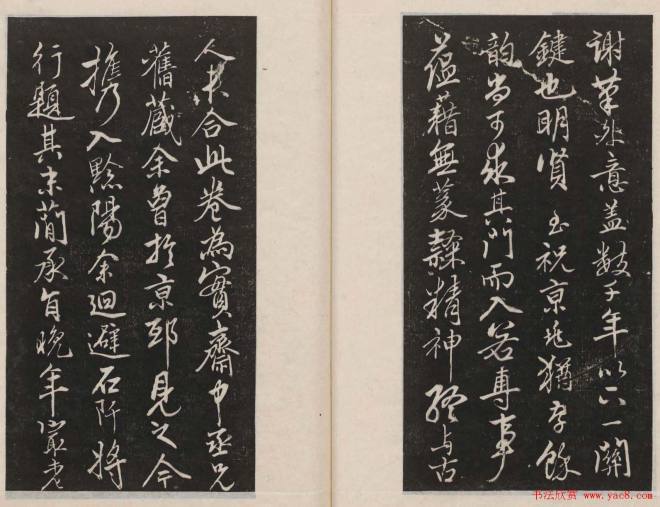 謝筆外意蓋數千年以一關
鍵也明賢至祝京兆猶存餘
韵尚可求其門而入若專事
蘊藉無篆隸精神終与古
人未合此卷為實齋中丞兄
舊藏余曾於京邸見之今
携入黔陽余迴避石阡將
行題其末簡承旨晚年最老
书法欣赏 www.yac8.com